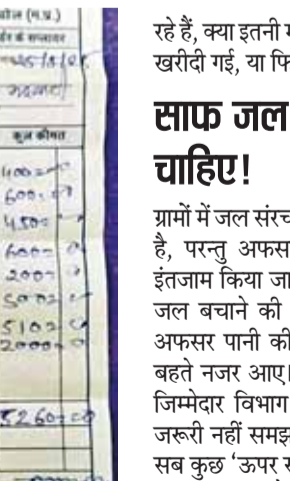 ोल (म.प्र.)
र्डर के सप्लायर
कुल कीमत
400=00
600=00
450=
600=
200=
5102
2000=
5260=00
रहे हैं, क्या इतनी म
खरीदी गई, या फि
साफ जल
चाहिए!
ग्रामों में जल संरच
है, परन्तु अफस
इंतजाम किया जा
जल बचाने की
अफसर पानी की
बहते नजर आए।
जिम्मेदार विभाग
जरूरी नहीं समझ
सब कुछ 'ऊपर स